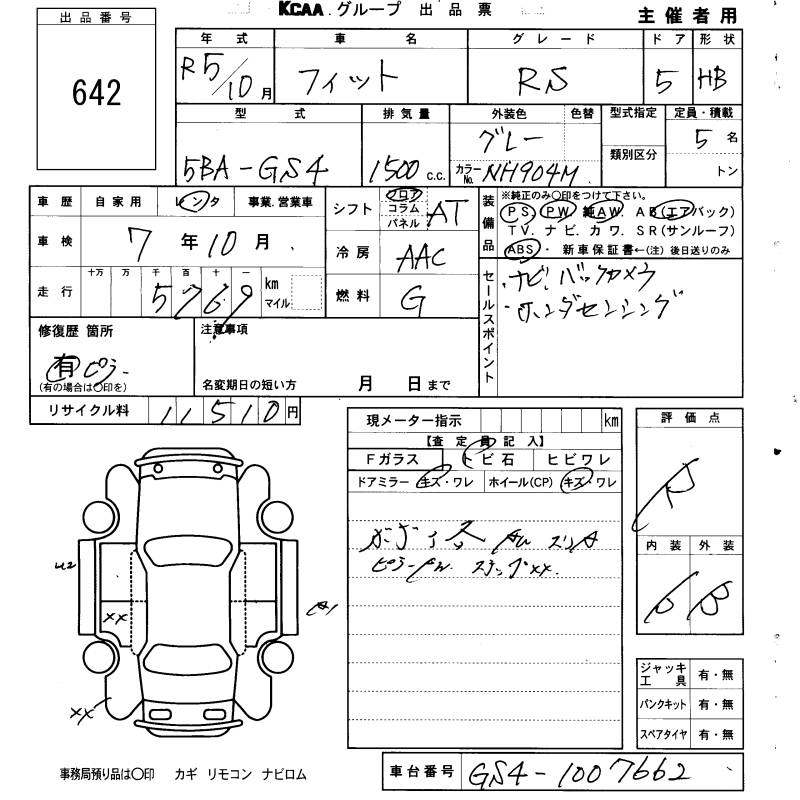 KCAA.グループ 出品票
主催者用
出品番号
642
年式 車名 グレード ドア 形状
R5/10月 フィット RS 5 HB
型式 排気量 外装色 色替 型式指定 定員・積載
5BA-GS4 1500 c.c. グレー 5名
カラーNo. NH904M 類別区分 トン
車歴 自家用 レンタ 事業.営業車
車検 7年10月
走行 十万 万 千 百 十 一
5769 km マイル
シフト フロア コラム パネル AT
冷房 AAC
燃料 G
装備品 ※純正のみ○印をつけて下さい。
PS. PW. 純AW. AB(エアバック)
TV. ナビ. カワ. SR(サンルーフ)
ABS・新車保証書←(注)後日送りのみ
セールスポイント
・ナビ バックカメラ
・ホンダセンシング
修復歴 箇所
有 ピラー
(有の場合は○印を)
注意事項
名変期日の短い方 月 日まで
リサイクル料 11510円
現メーター指示 km
【査定員記入】
Fガラス トビ石 ヒビワレ
ドアミラー キズ・ワレ ホイール(CP) キズ・ワレ
評価点
R
内装 外装
B
U2
XX
A1
XX
ジャッキ工具 有・無
パンクキット 有・無
スペアタイヤ 有・無
事務局預り品は○印 カギ リモコン ナビロム
車台番号 GS4-1007662